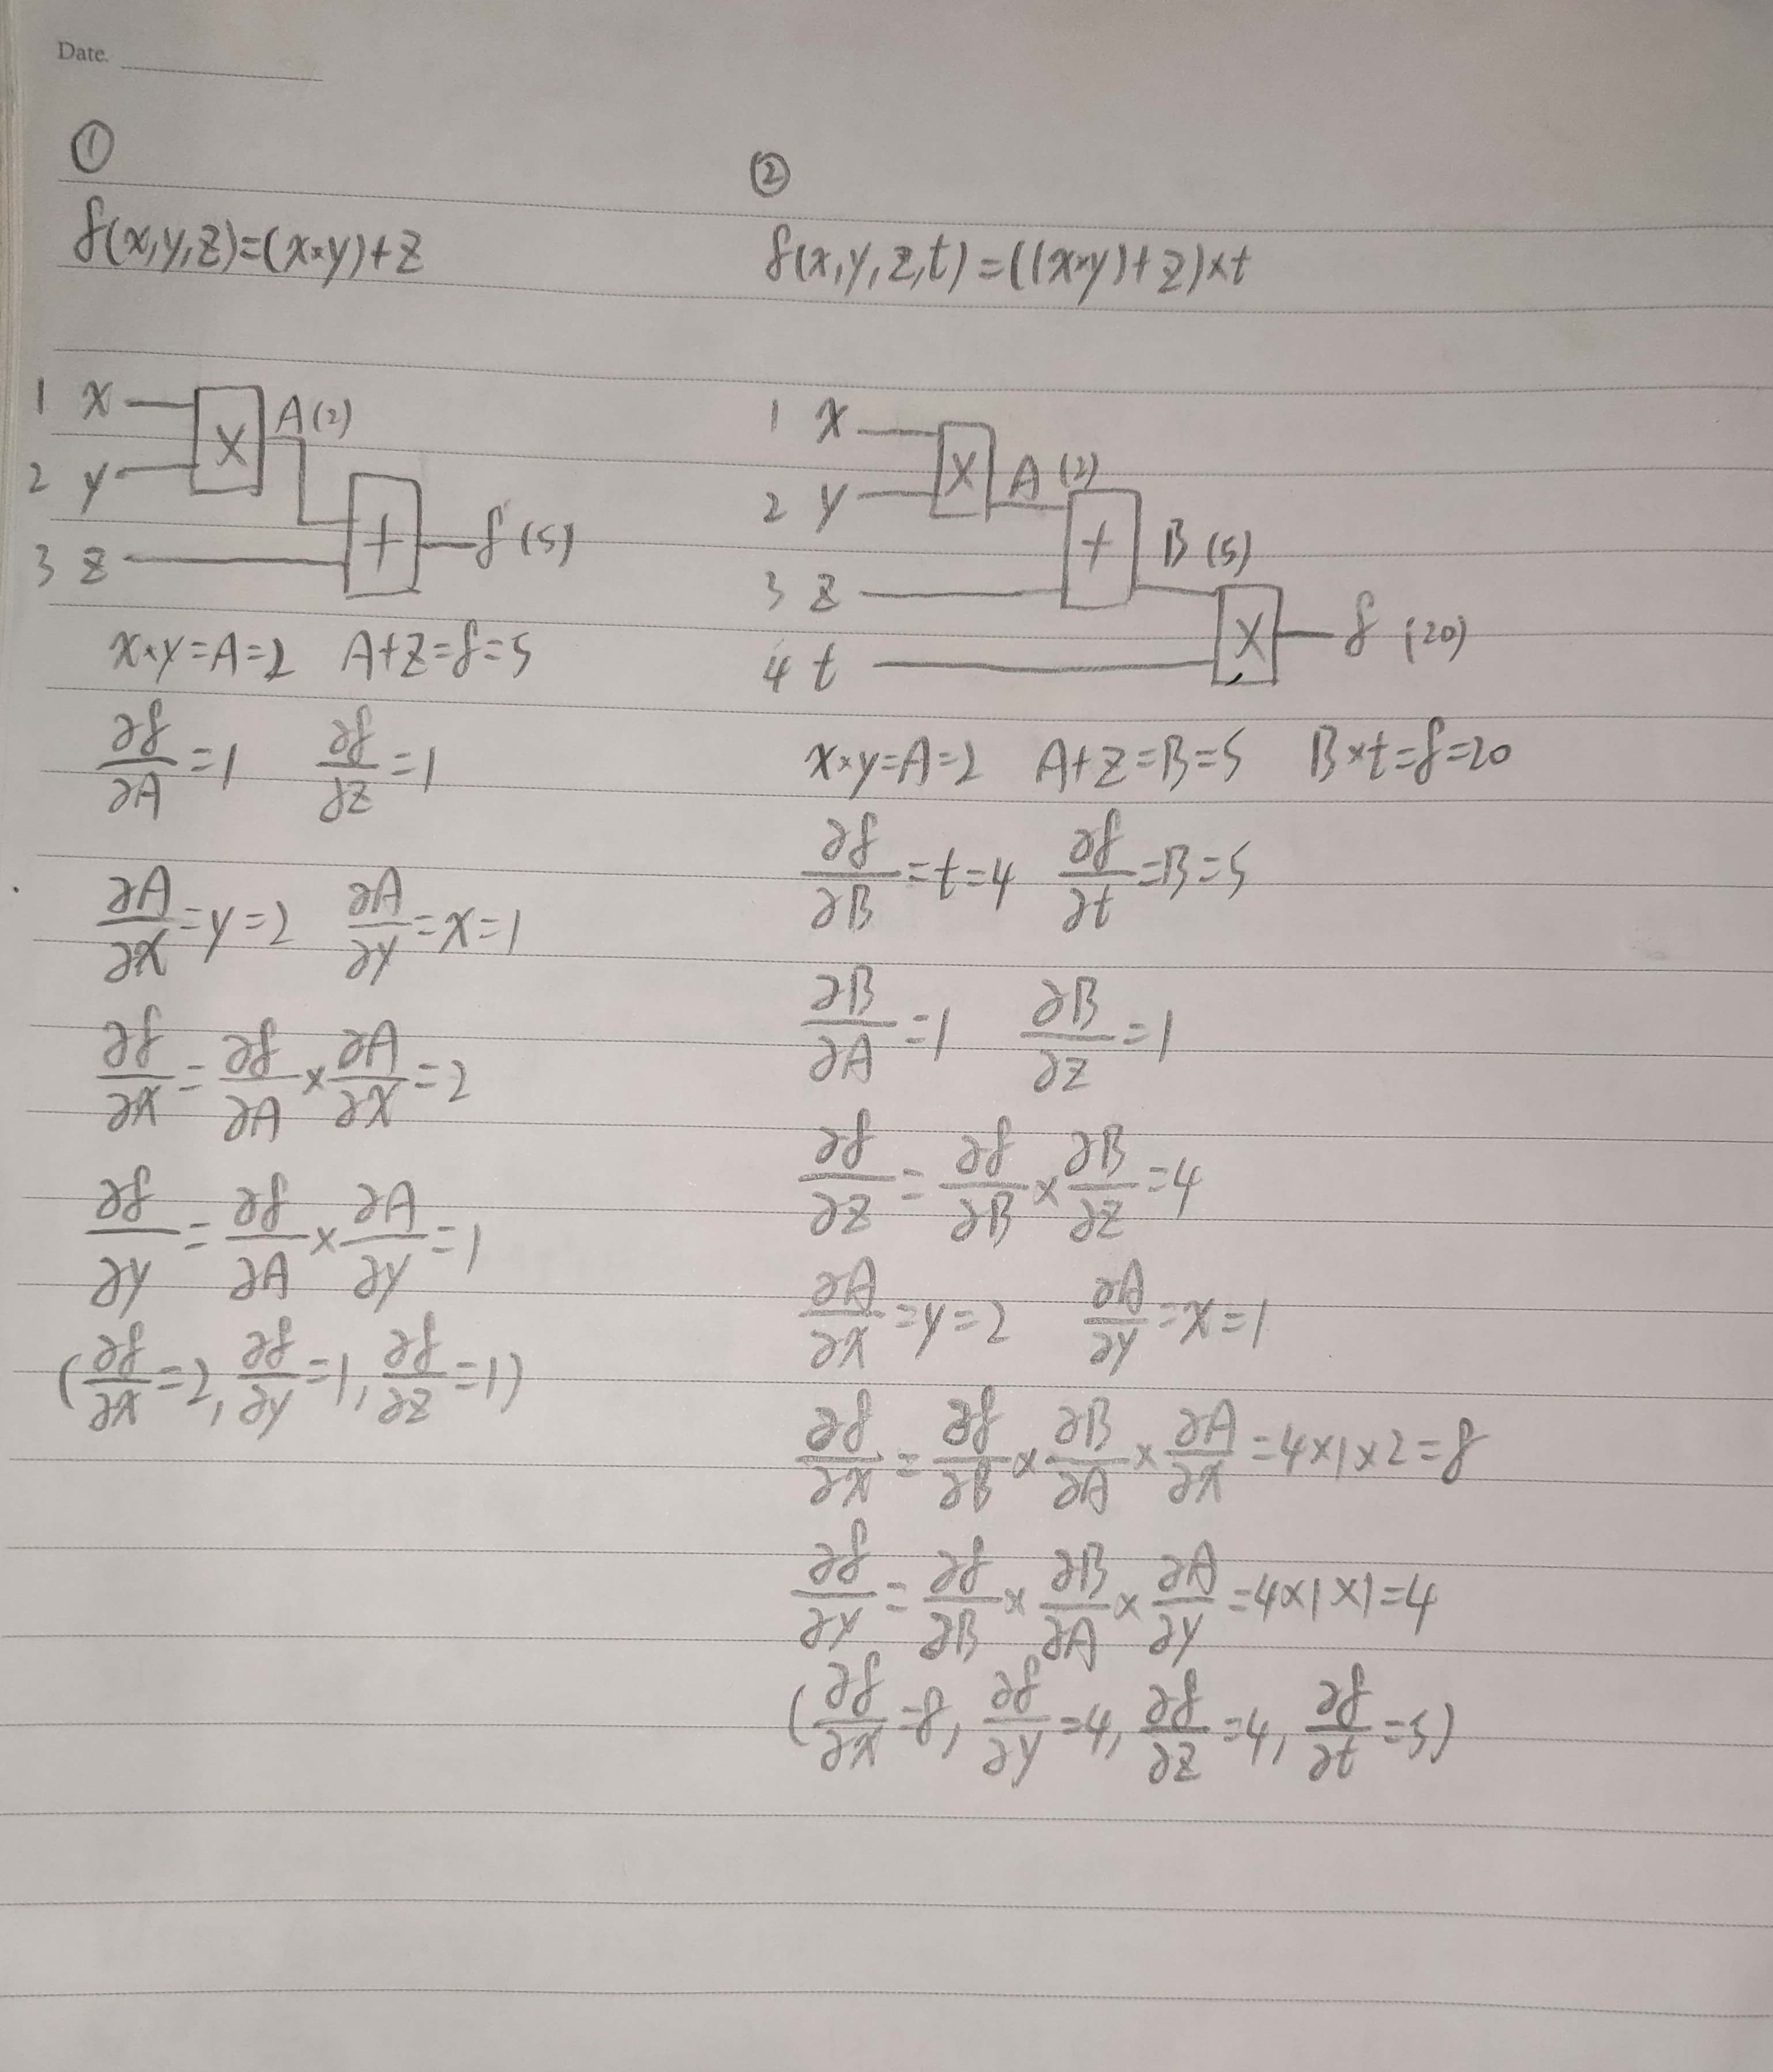 Date.
①
f(x,y,z)=(x×y)+z
1 x
×
A(2)
2 y
+
f (5)
3 z
x×y=A=2 A+z=f=5
∂f/∂A=1 ∂f/∂z=1
∂A/∂x=y=2 ∂A/∂y=x=1
∂f/∂x=∂f/∂A×∂A/∂x=2
∂f/∂y=∂f/∂A×∂A/∂y=1
(∂f/∂x=2, ∂f/∂y=1, ∂f/∂z=1)
②
f(x,y,z,t)=((x×y)+z)×t
1 x
×
A (2)
2 y
+
B (5)
3 z
×
f (20)
4 t
x×y=A=2 A+z=B=5 B×t=f=20
∂f/∂B=t=4 ∂f/∂t=B=5
∂B/∂A=1 ∂B/∂z=1
∂f/∂z=∂f/∂B×∂B/∂z=4
∂A/∂x=y=2 ∂A/∂y=x=1
∂f/∂x=∂f/∂B×∂B/∂A×∂A/∂x=4×1×2=8
∂f/∂y=∂f/∂B×∂B/∂A×∂A/∂y=4×1×1=4
(∂f/∂x=8, ∂f/∂y=4, ∂f/∂z=4, ∂f/∂t=5)